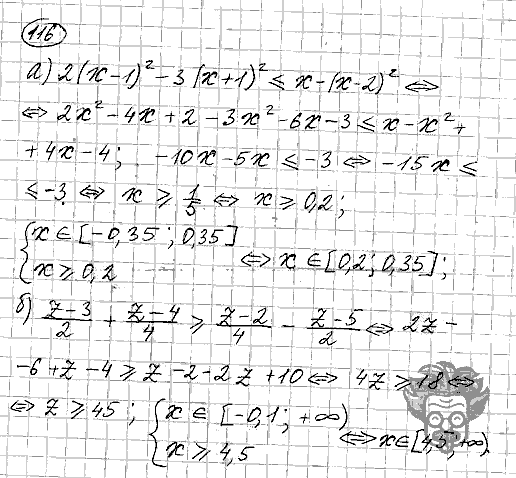 116
а) 2(x-1)² - 3(x+1)² ≤ x-(x-2)² ⇔
⇔ 2x² - 4x + 2 - 3x² - 6x - 3 ≤ x - x² +
+ 4x - 4; -10x - 5x ≤ -3 ⇔ -15x ≤
≤ -3 ⇔ x ≥ 1/5 ⇔ x ≥ 0,2;
{ x ∈ [-0,35; 0,35]
x ≥ 0,2 ⇔ x ∈ [0,2; 0,35];
б) (z-3)/2 + (z-4)/4 ≥ (z-2)/4 - (z-5)/2 ⇔ 2z -
-6 + z - 4 ≥ z - 2 - 2z + 10 ⇔ 4z ≥ 18 ⇔
⇔ z ≥ 45; { x ∈ [-0,1; +∞)
x ≥ 4,5 ⇔ x ∈ [4,5; +∞)